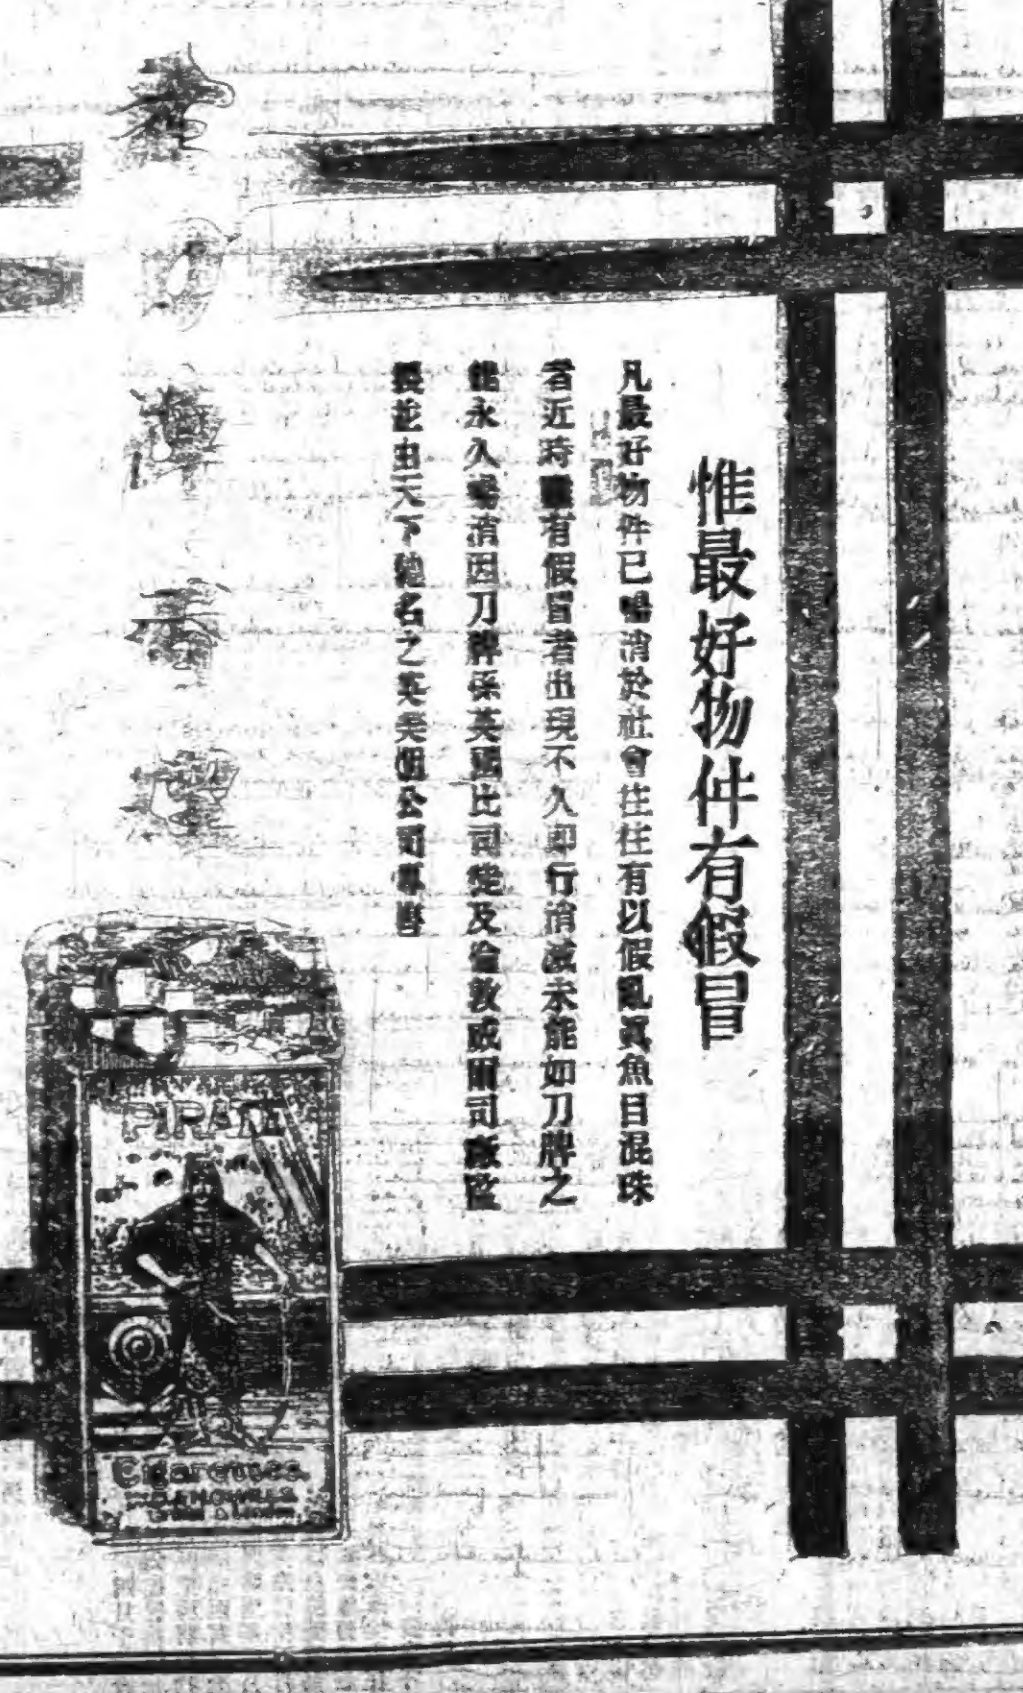 惟最好物件有假冒
凡最好物件已暢消於社會往往有以假亂眞魚目混珠
者近時雖有假冒者出現不久即行消滅未能如刀牌之
能永久暢消因刀牌係英國比司及倫敦威爾司廠監
製並由天下馳名之英美烟公司專售
老刀牌香烟
PIRATE
Cigarettes.